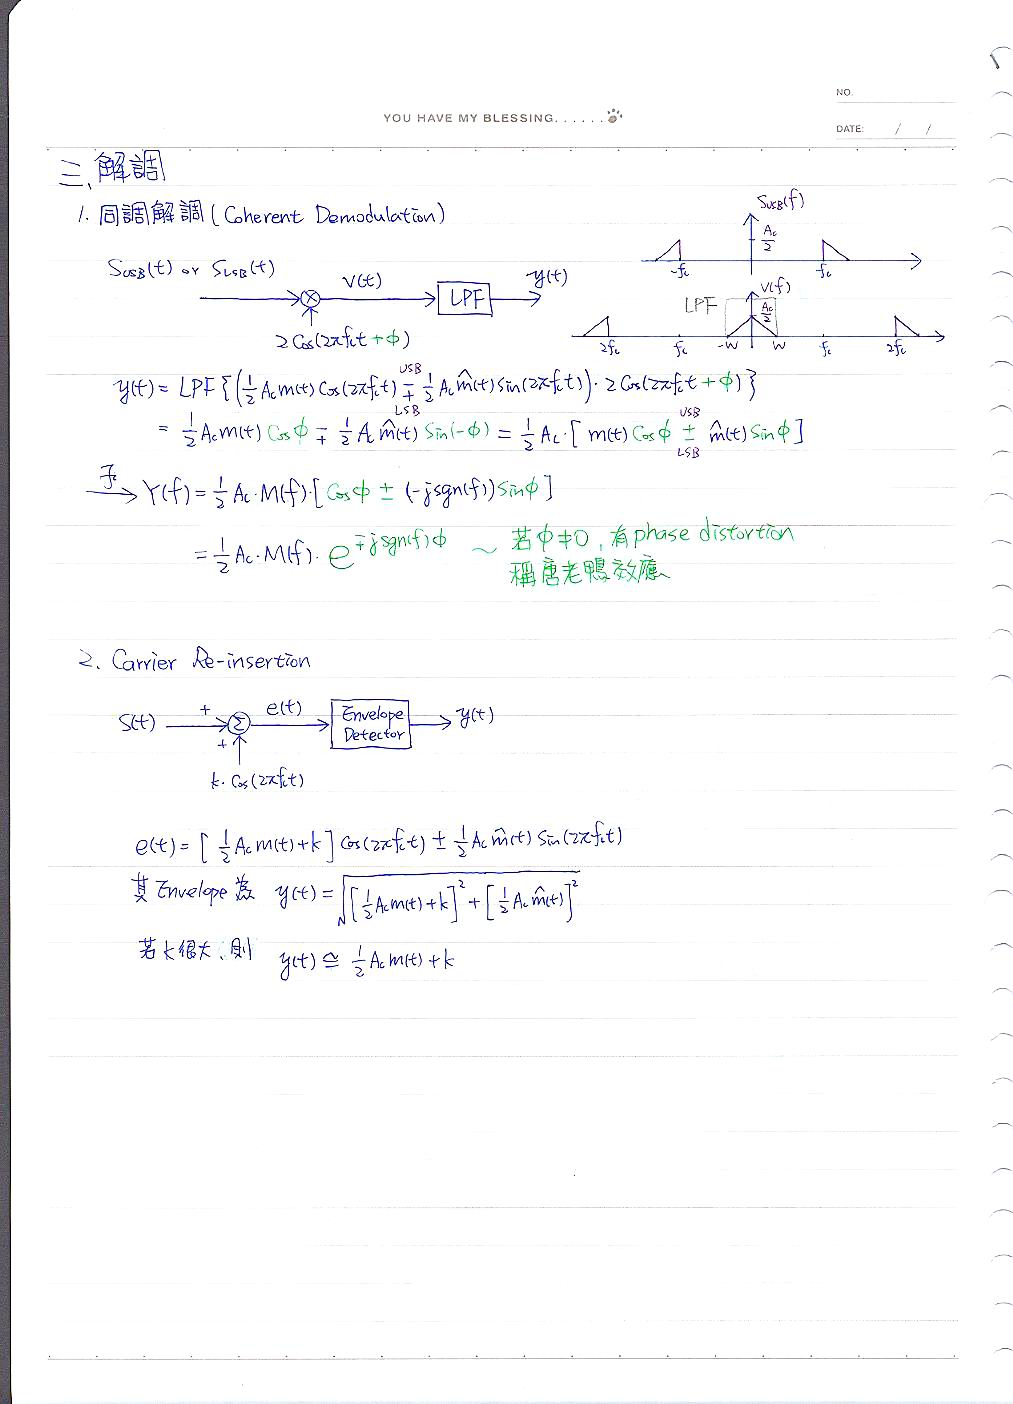 NO.
YOU HAVE MY BLESSING......
DATE: / /
三、解調
1. 同調解調 (Coherent Demodulation)
S_USB(f)
A_c/2
-f_c f_c
S_USB(t) or S_LSB(t)
V(t)
LPF
y(t)
2Cos(2πf_ct+φ)
V(f)
LPF
A_c/2
2f_c f_c -W W f_c 2f_c
y(t) = LPF{(1/2 A_c m(t) Cos(2πf_ct) ∓ 1/2 A_c m̂(t) Sin(2πf_ct))·2Cos(2πf_ct+φ)}
USB
LSB
= 1/2 A_c m(t) Cosφ ∓ 1/2 A_c m̂(t) Sin(-φ) = 1/2 A_c·[m(t) Cosφ ± m̂(t) Sinφ]
USB
LSB
ℱ→ Y(f) = 1/2 A_c·M(f)·[Cosφ ± (-jsgn(f))Sinφ]
= 1/2 A_c·M(f)·e^{∓jsgn(f)φ} ~ 若φ≠0, 有phase distortion
稱唐老鴨效應
2. Carrier Re-insertion
S(t) + Σ e(t) Envelope Detector y(t)
+
k·Cos(2πf_ct)
e(t) = [1/2 A_c m(t)+k] Cos(2πf_ct) ± 1/2 A_c m̂(t) Sin(2πf_ct)
其Envelope為 y(t) = √([1/2 A_c m(t)+k]² + [1/2 A_c m̂(t)]²)
若k很大, 則 y(t) ≅ 1/2 A_c m(t)+k